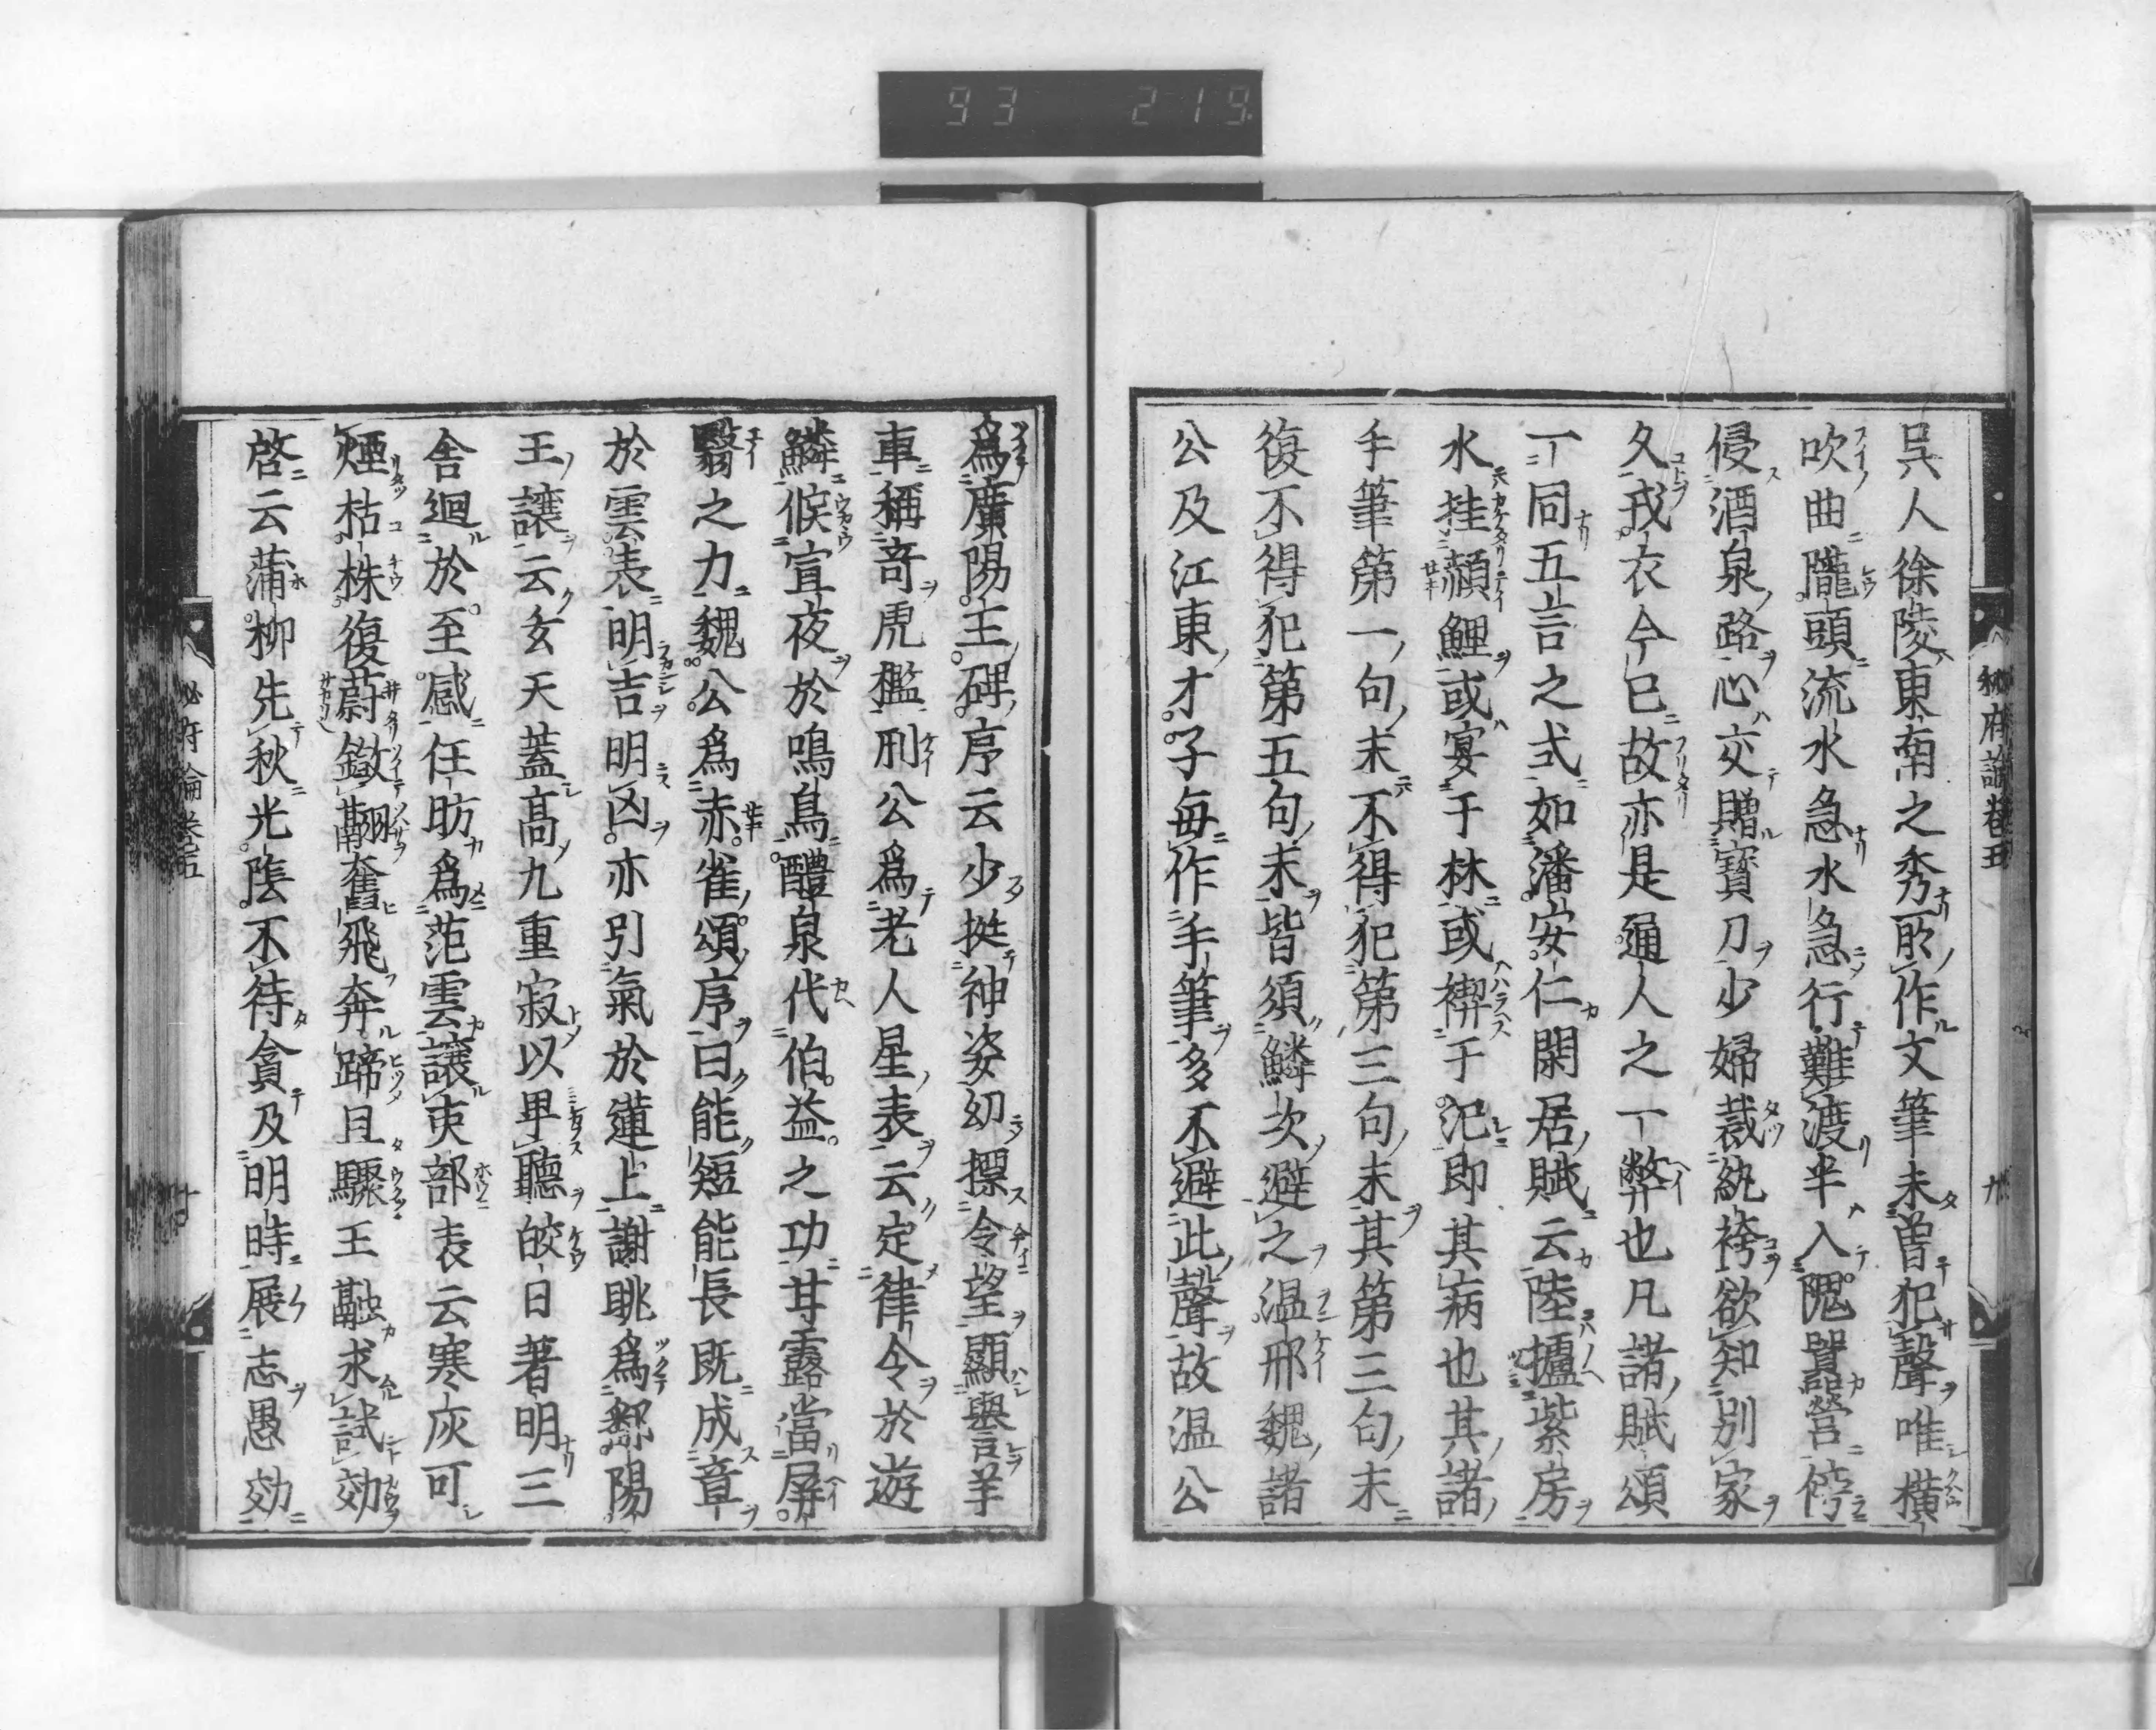 93 219
秘府論卷五
九
吳人徐陵東南之秀所作文筆未曽犯聲唯橫
吹曲隴頭流水急水急行難渡半入隗囂營傍
侵酒泉路心交贈寳刀少婦裁紈袴欲知別家
久戎衣今已故亦是通人之一弊也凡諸賦頌
一同五言之式如潘安仁閑居賦云陸攎紫房
水挂赬鯉或宴于林或禊于汜即其病也其諸
手筆第一句末不得犯第三句末其第三句末
復不得犯第五句末皆須鱗次避之温邢魏諸
公及江東才子毎作手筆多不避此聲故温公
為廣陽王碑序云少挺神姿幼摽令望顯譽羊
車稱竒虎檻刑公為老人星表云定律令於遊
鱗候宣夜於鳴鳥醴泉代伯益之功甘露當屏
翳之力魏公為赤雀頌序曰能短能長既成章
於雲表明吉明凶亦引氣於蓮上謝眺為鄱陽
王讓云玄天蓋髙九重寂以卑聽皎日著明三
舎迴於至感任昉為范雲讓吏部表云寒灰可
煙枯株復蔚鎩翮奮飛奔蹄且驟王融求試効
啓云蒲柳先秋光陰不待貪及明時展志愚効
秘府論卷五
十